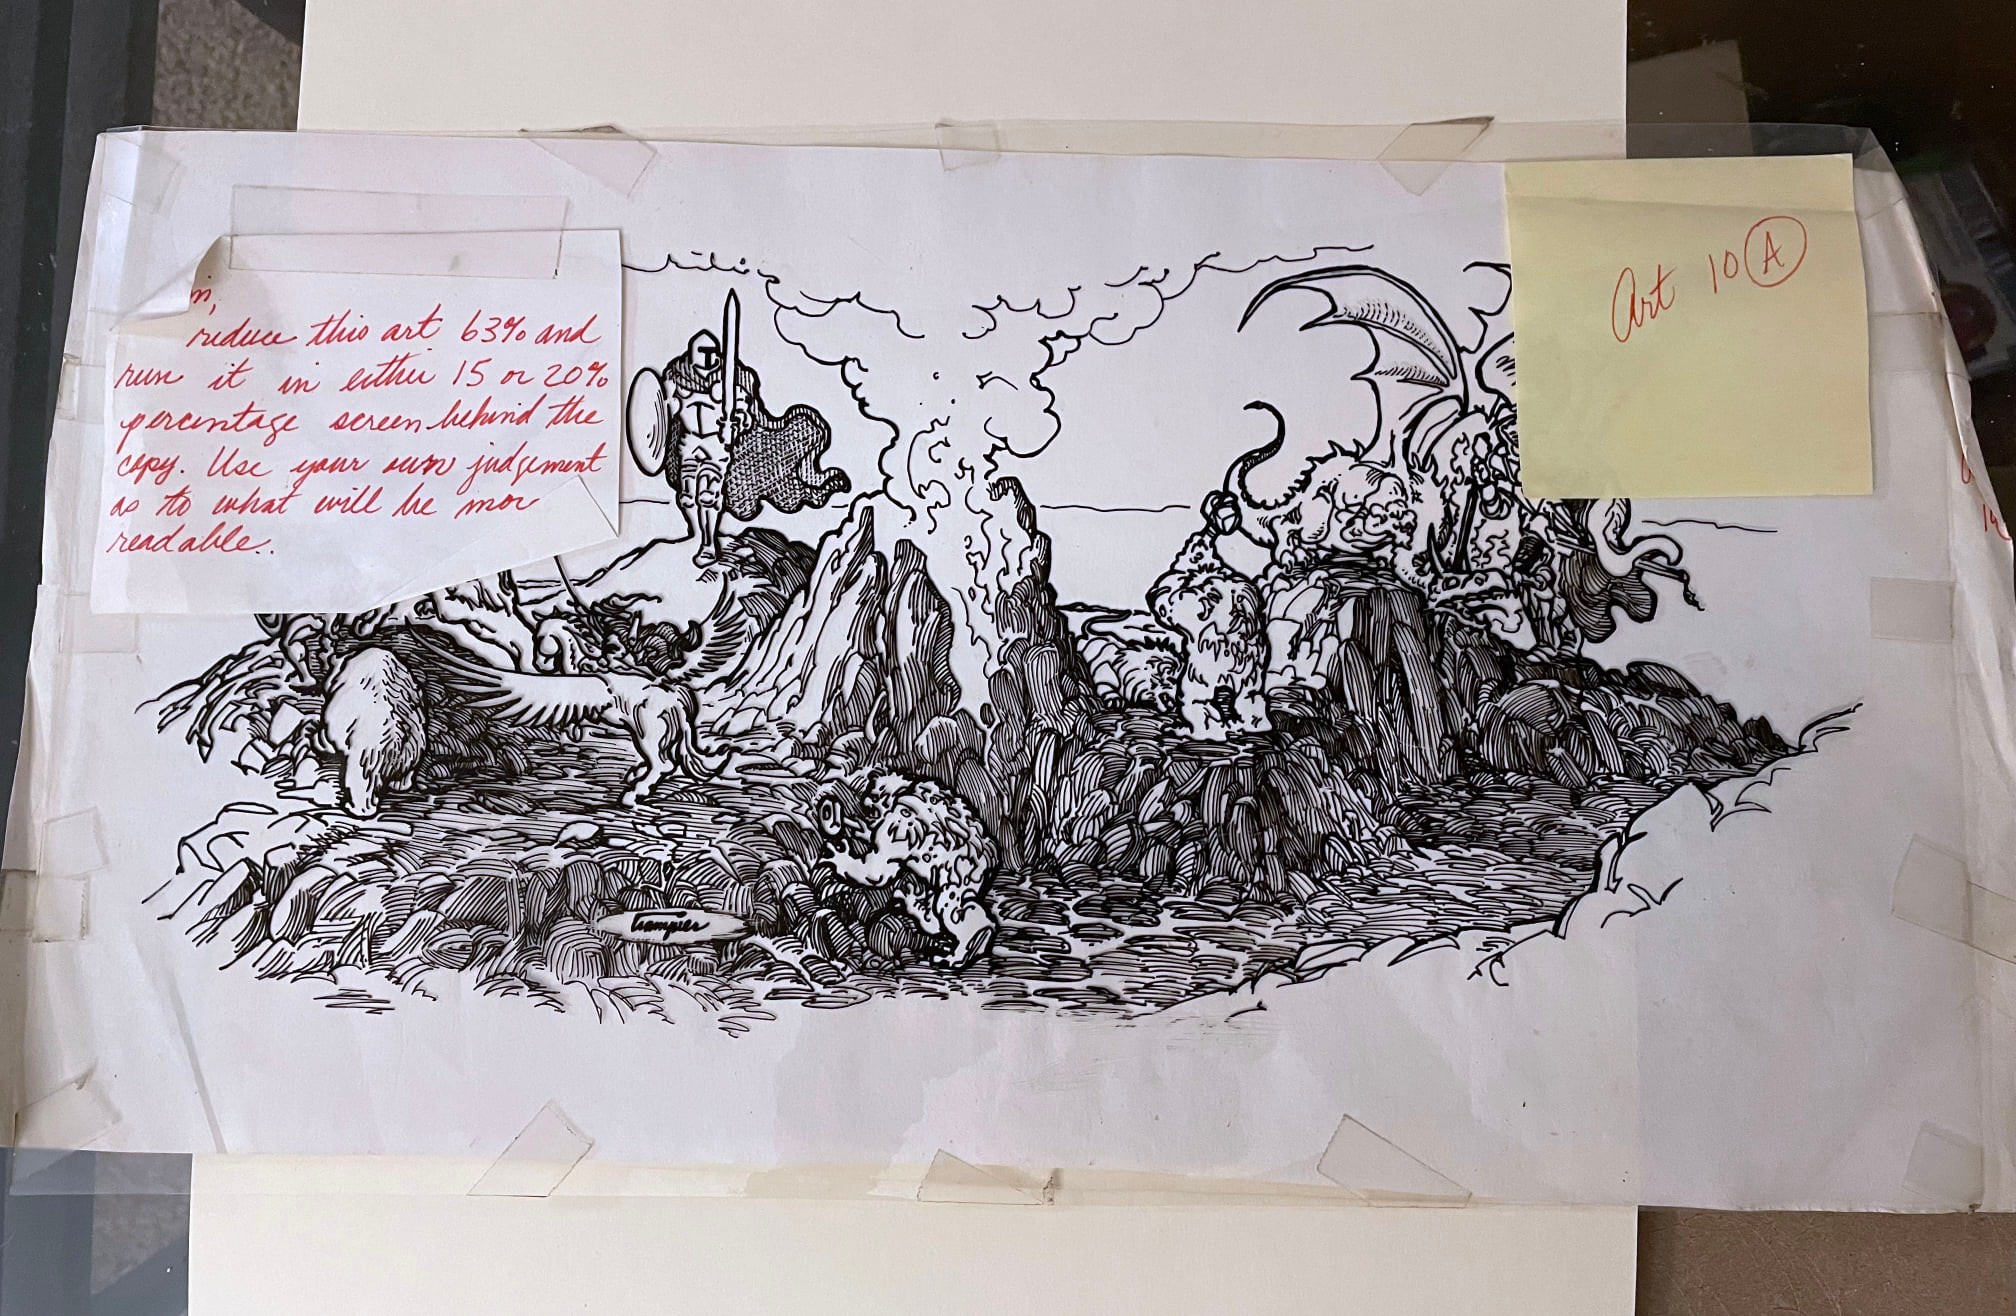 reduce this art 63% and
run it in either 15 or 20%
percentage screen behind the
copy. Use your own judgement
as to what will be mor
readable.
Art 10 A
Trampier